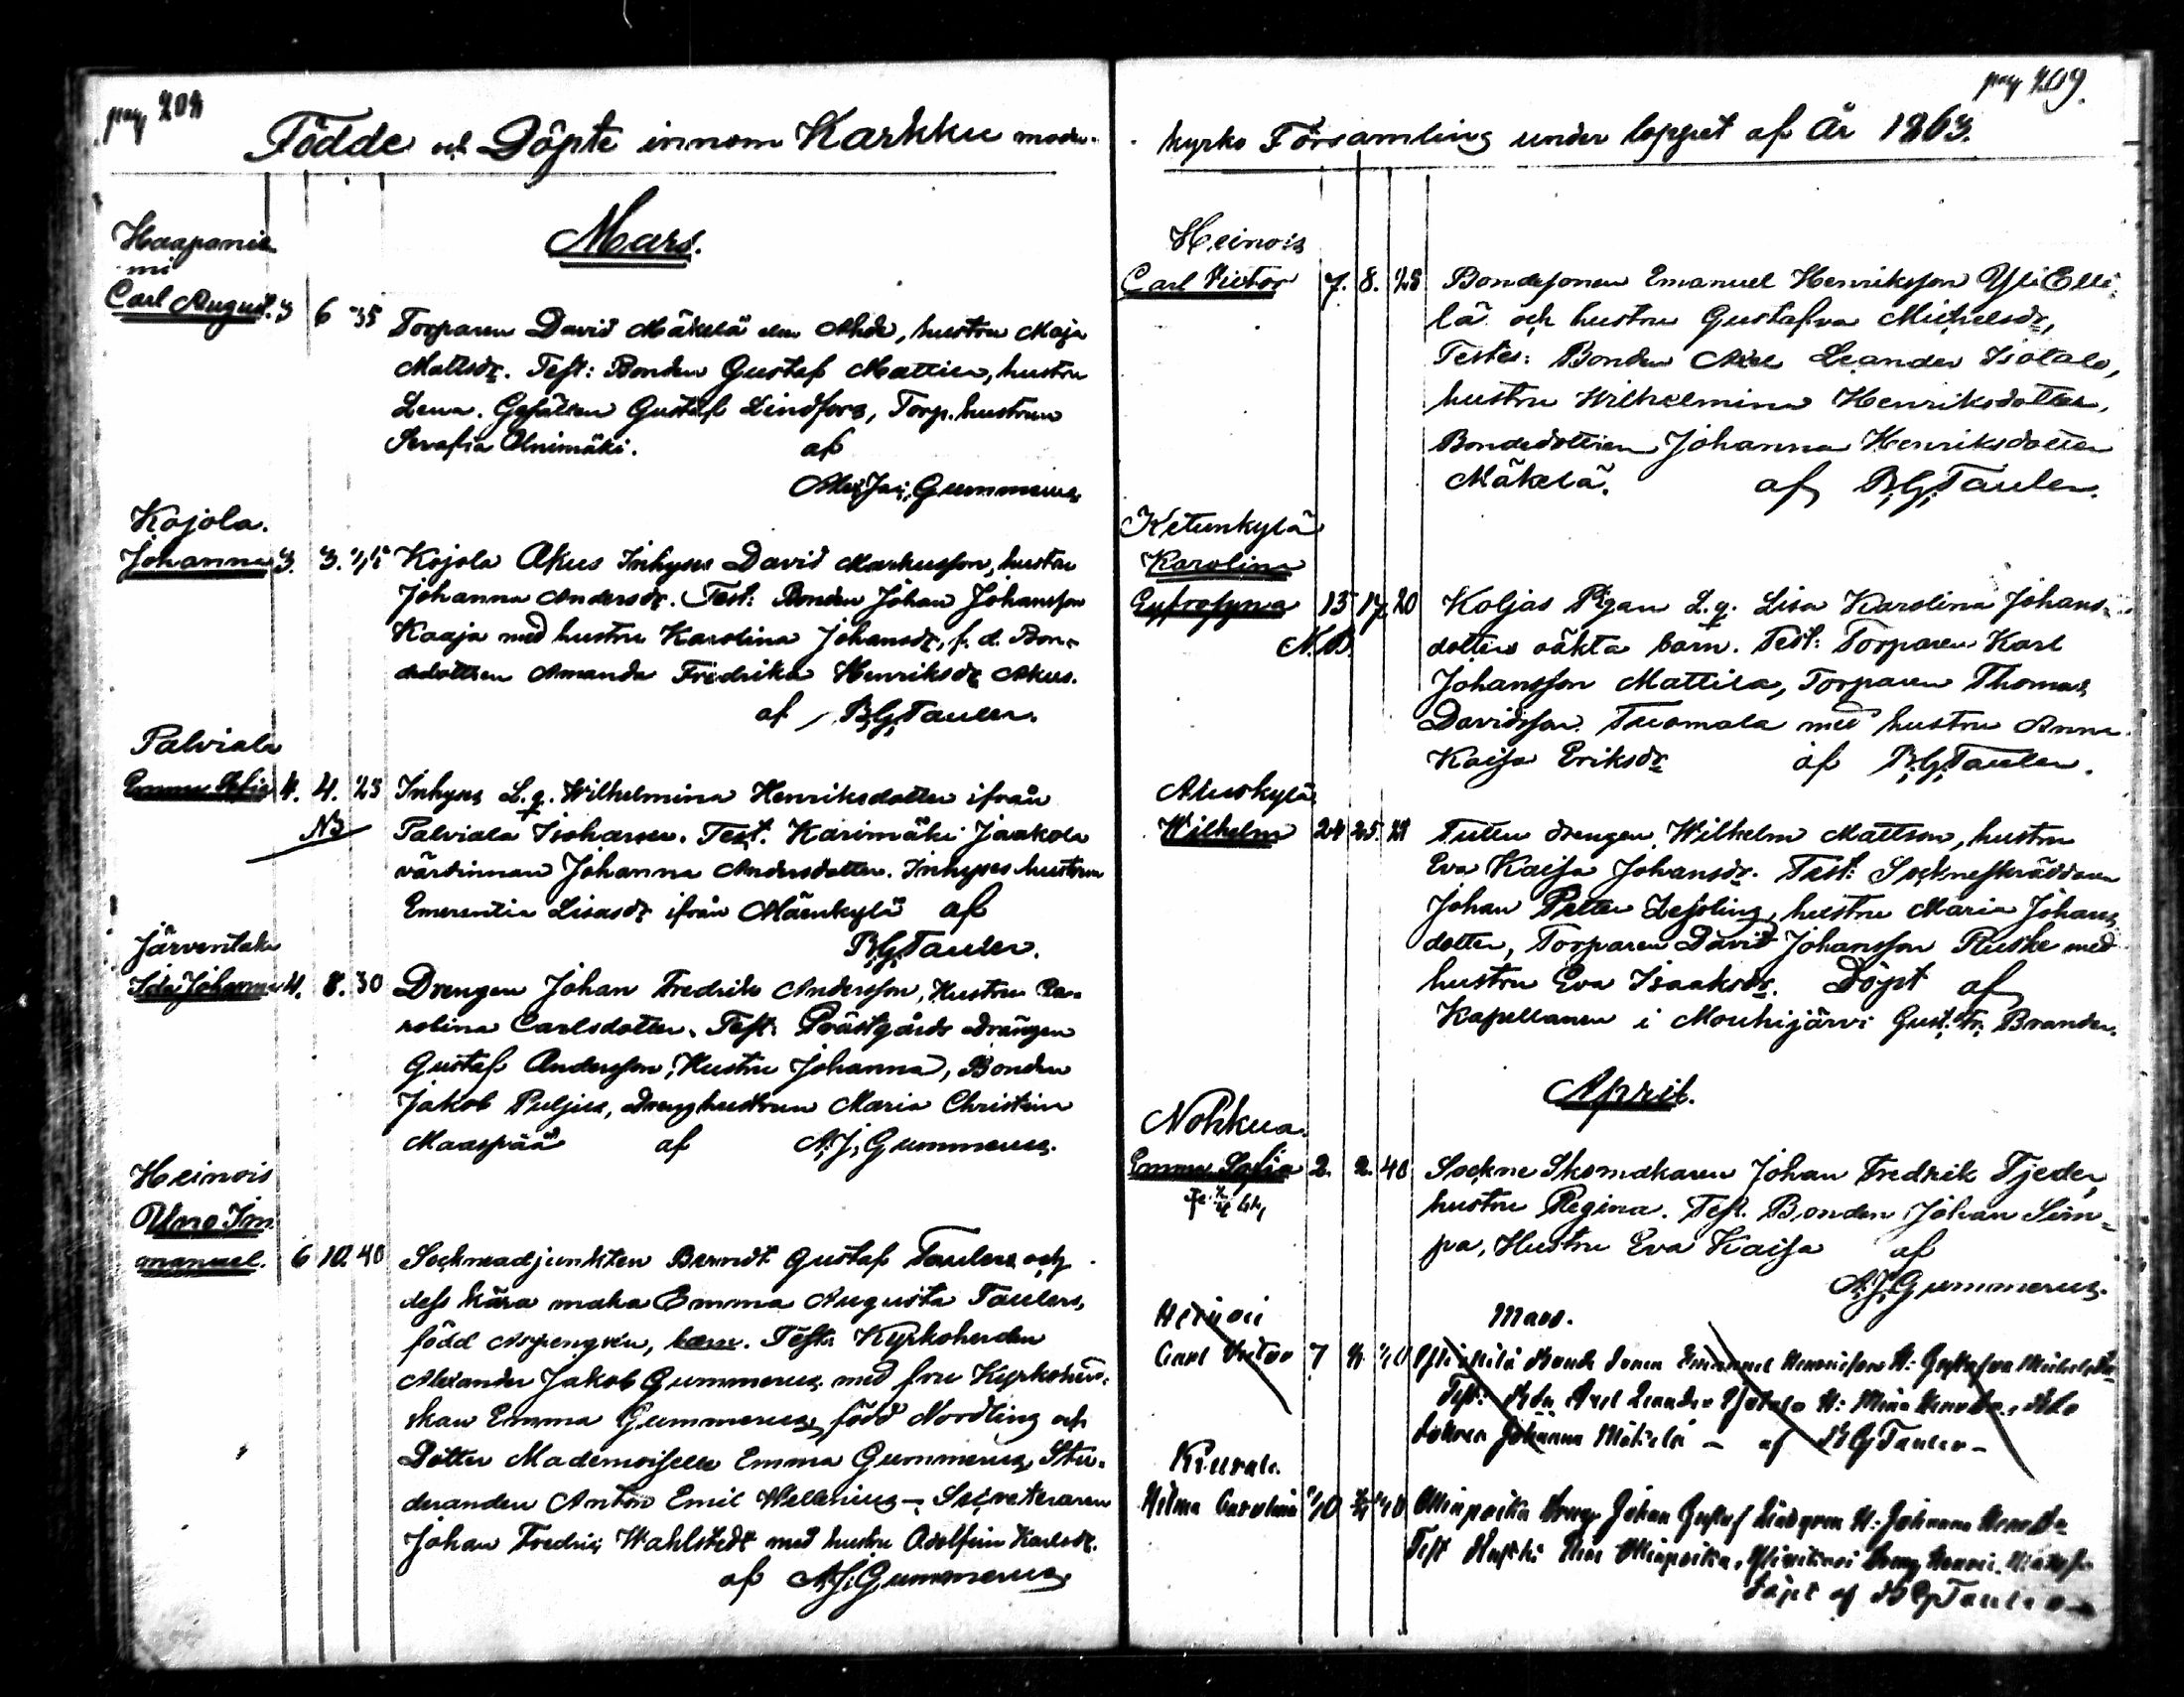 pag 208
Födde och Döpte innom Karkku moder-
Mars.
Haapanie
mi
Carl August. 3 6 35 Torparen David Mäkelä, hustru Maja
Mattsdr. Test: Bonden Gustaf Mattila, hustru
Lena. Gesällen Gustaf Lindfors, Torp. hustrun
Serafia Alnimäki. af
Alex. Jac. Gummerus
Kojola.
Johanna 3. 3. Kojola Akus Inhyses David Markusson, hustru
Johanna Andersdr. Test: Bonden Johan Johansson
Kaaja med hustru Karolina Johansdr, f. d. Bon-
dedottren Amanda Fredrika Henriksdr Akus.
af B.G. Tauler.
Palviala
Emma Sofia 4. 4. 23 Inhyses L.q. Wilhelmina Henriksdotter ifrån
NB Palviala Test. Karimäki Jaakola
värdinnan Johanna Andersdotter. Inhyses hustrun
Emerentia Lisasdr ifrån Mäenkylä af
B.G. Tauler.
Järventaka
Ida Johanna 4. 8. 30 Drengen Johan Fredrik Andersson, Hustru Ca-
rolina Carlsdotter. Test: Prästgårds Drängen
Gustaf Andersson, Hustru Johanna, Bonden
Jakob Puljus, Drenghustrun Maria Christina
Maaspää af A.J. Gummerus.
Heinois
Uno Im
manuel. 6 10 40 Sockneadjunkten Berndt Gustaf Taulers och
dess kära maka Emma Augusta Taulers,
född Aspengrén, barn. Test: Kyrkoherden
Alexander Jakob Gummerus med fru Kyrkoher-
skan Emma Gummerus, född Nordling och
Dotter Mademoiselle Emma Gummerus, Stu-
deranden Anton Emil Wellenius - Secreteraren
Johan Fredric Wahlstedt med hustru Adolfina Karlsdr.
af A.J. Gummerus
pag 209.
kyrko Församling under loppet af År 1863.
Heinois
Carl Victor 7. 8. 28 Bondesonen Emanuel Henriksson Yli Elli-
lä och hustru Gustafva Michelsdr,
Testes: Bonden Axel Leander Isotalo,
hustru Wilhelmina Henriksdotter,
Bondedottren Johanna Henriksdotter
Mäkelä. af B.G. Tauler.
Ketunkylä
Karolina
Eufrosyna 15 17 20 Koljas Pigan L.q. Lisa Karolina Johans-
N.B. dotters oäkta barn. Test: Torparen Karl
Johansson Mattila, Torparen Thomas
Davidsson Tuomala med hustru Anna
Kaisa Eriksdr af B.G. Tauler.
Aluskylä
Wilhelm 24 25. 28 Tulen drengen Wilhelm Mattson, hustru
Eva Kaisa Johansdr. Test: Sockneskräddaren
Johan Petter Lessling, hustru Maria Johans
dotter, Torparen David Johansson Ruske med
hustru Eva Isaaksdr. Döpt af
Kapellanen i Mouhijärvi Gust. Fr. Brander.
April.
Nohkua
Emma Sofia 2. 2. 40 Sockne Skomakaren Johan Fredrik Tjeder,
hustru Regina. Test. Bonden Johan Sim-
pa, Hustru Eva Kaisa af
A.J. Gummerus.
Mars.
Heinois
Carl Victor 7 8 Emanuel Henricsson H: Gustafva Michelsdr
Test: Axel Leander Isotalo H: Mina
Johanna Mäkelä - af B G Tauler -
Kiurala.
Hilma Carolina Ollinpoika Dreng Johan Gustaf Lindgren H: Johanna
Test Ollinpoika,
Döpt af B G Tauler